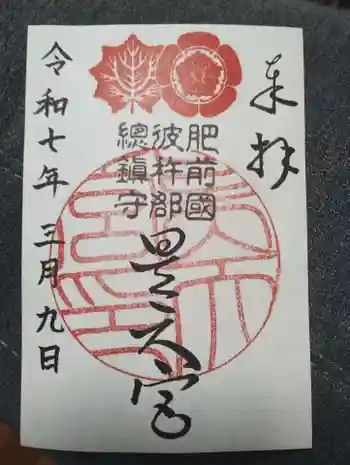 奉拝
肥前國
彼杵郡
總鎮守
昊天宮
令和七年三月九日